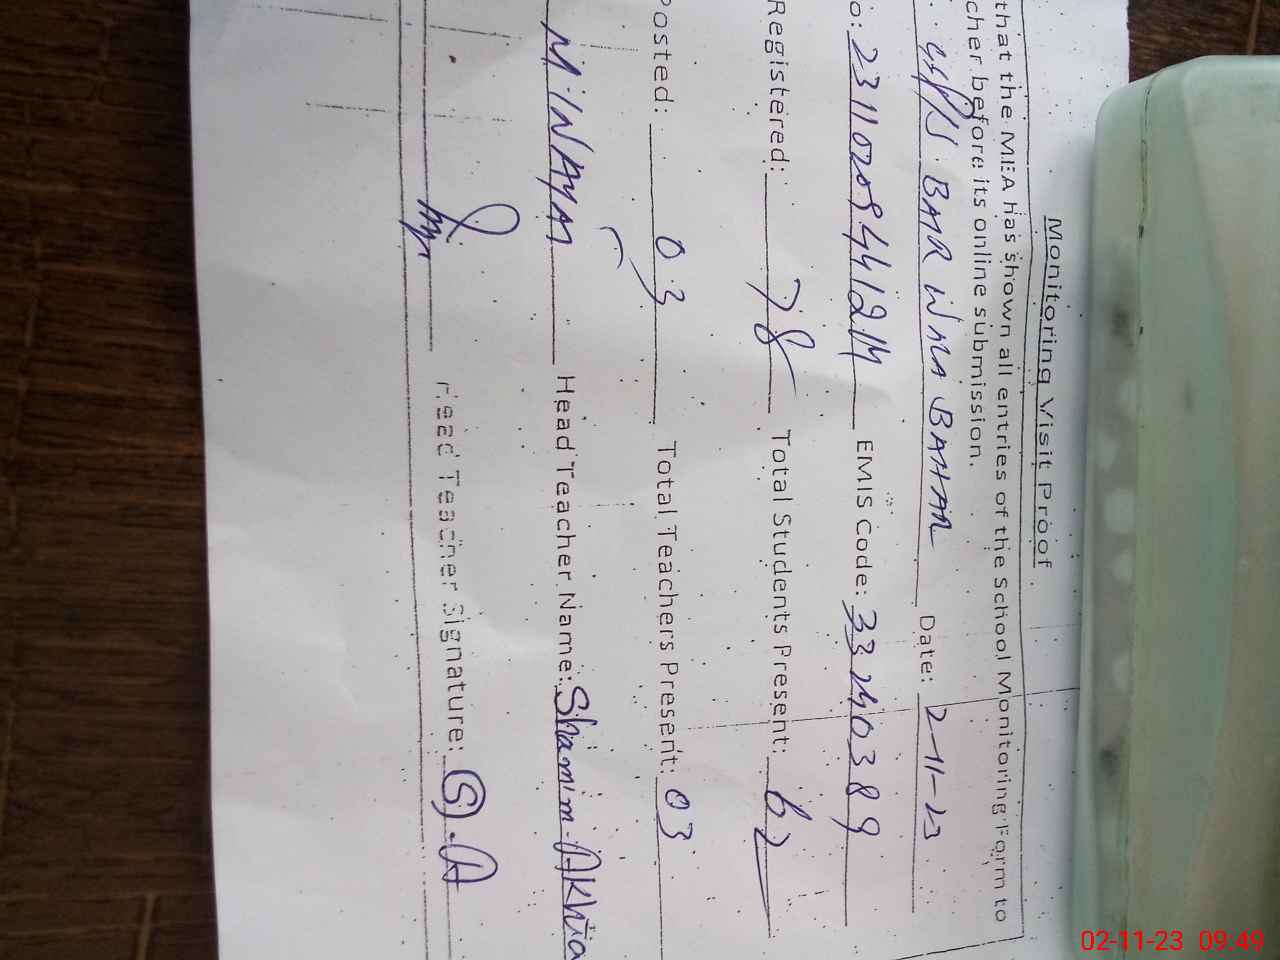 Monitoring Visit Proof
that the MEA has shown all entries of the School Monitoring Form to
cher before its online submission.
BAAR WALA BAHAR Date: 2-11-23
o: EMIS Code: 33240389
Registered: 78 Total Students Present: 62
Posted: 03 Total Teachers Present: 03
M. INAM Head Teacher Name: Shamim. Akhta
Head Teacher Signature: S.A
02-11-23 09:49